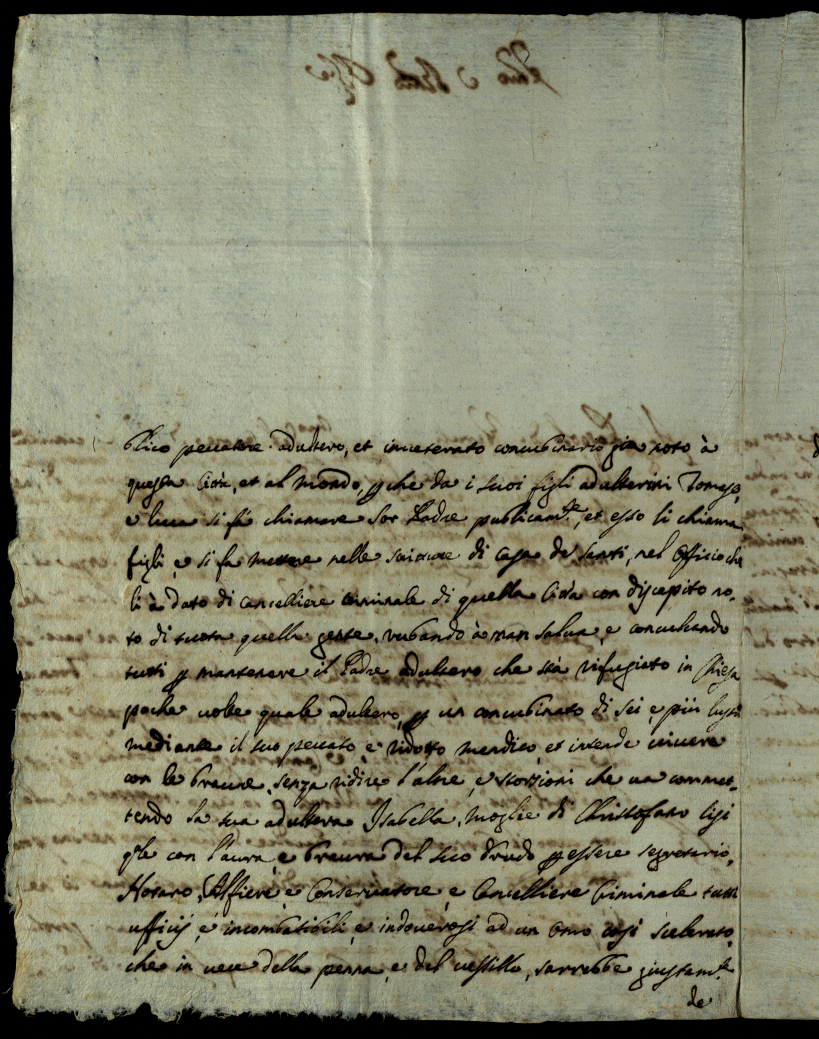 blico peccatore adultero, et inveterato concubinario gia noto à
questa Città, et al mondo, p che da i suoi figli adulterini Tomaso,
e luca si fà chiamare Sor Padre publicam.te, et esso li chiama
figli, e si fa mettere nelle di casa de Santi, nel Offitio che
li à dato di cancelliere criminale di quella Città con discapito no,,
to di tutta quella gente, rubando à man salva, e conculcando
tutti p mantenere il Padre adultero che sta rifugiato in Chiesa
poche volte quale adultero, p un concubinato di sei, e più lustri
mediante il suo peccato è ridotto mendico, et intende vivere
con le bravure, senza ridire l'altre, e storsioni che va commet,,
tendo la sua adultera Isabella, moglie di Christofano
qle con l'aura, e bravura del suo drudo p essere segretario,
Notaro, Alfiere, e Conservatore, e Cancelliere Criminale tutti
uffitij, e incompatibili, e indoverosi ad un omo così scelerato,
che in vece della penna, e del vessillo, sarrebbe giustam.te
de